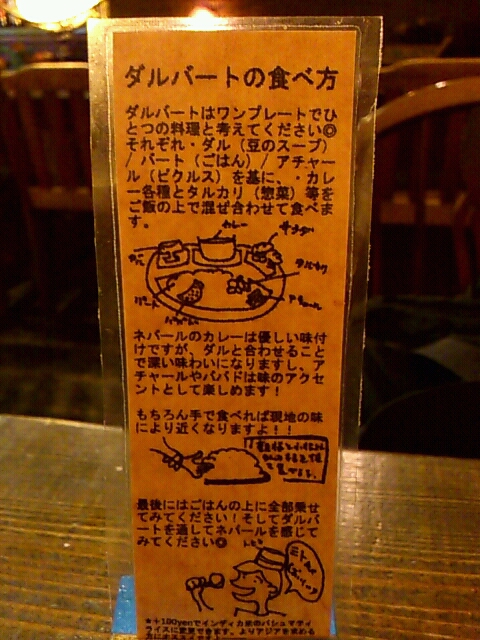 ダルバートの食べ方
ダルバートはワンプレートでひ
とつの料理と考えてください◎
それぞれ・ダル（豆のスープ）
/ バート（ごはん）/ アチャー
ル（ピクルス）を基に、・カレ
ー各種とタルカリ（惣菜）等を
ご飯の上で混ぜ合わせて食べま
す。
カレー
サラダ
ダル
タルカリ
バート
アチャール
パパド
ネパールのカレーは優しい味付
けですが、ダルと合わせること
で深い味わいになりますし、ア
チャールやパパドは味のアクセ
ントとして楽しめます！
もちろん手で食べれば現地の味
により近くなりますよ！！
最後にはごはんの上に全部乗せ
てみてください！そしてダルバ
ートを通してネパールを感じて
みてください◎
★＋100yenでインディカ米のバシュマティ
ライスに変更できます。よりアジアを求める